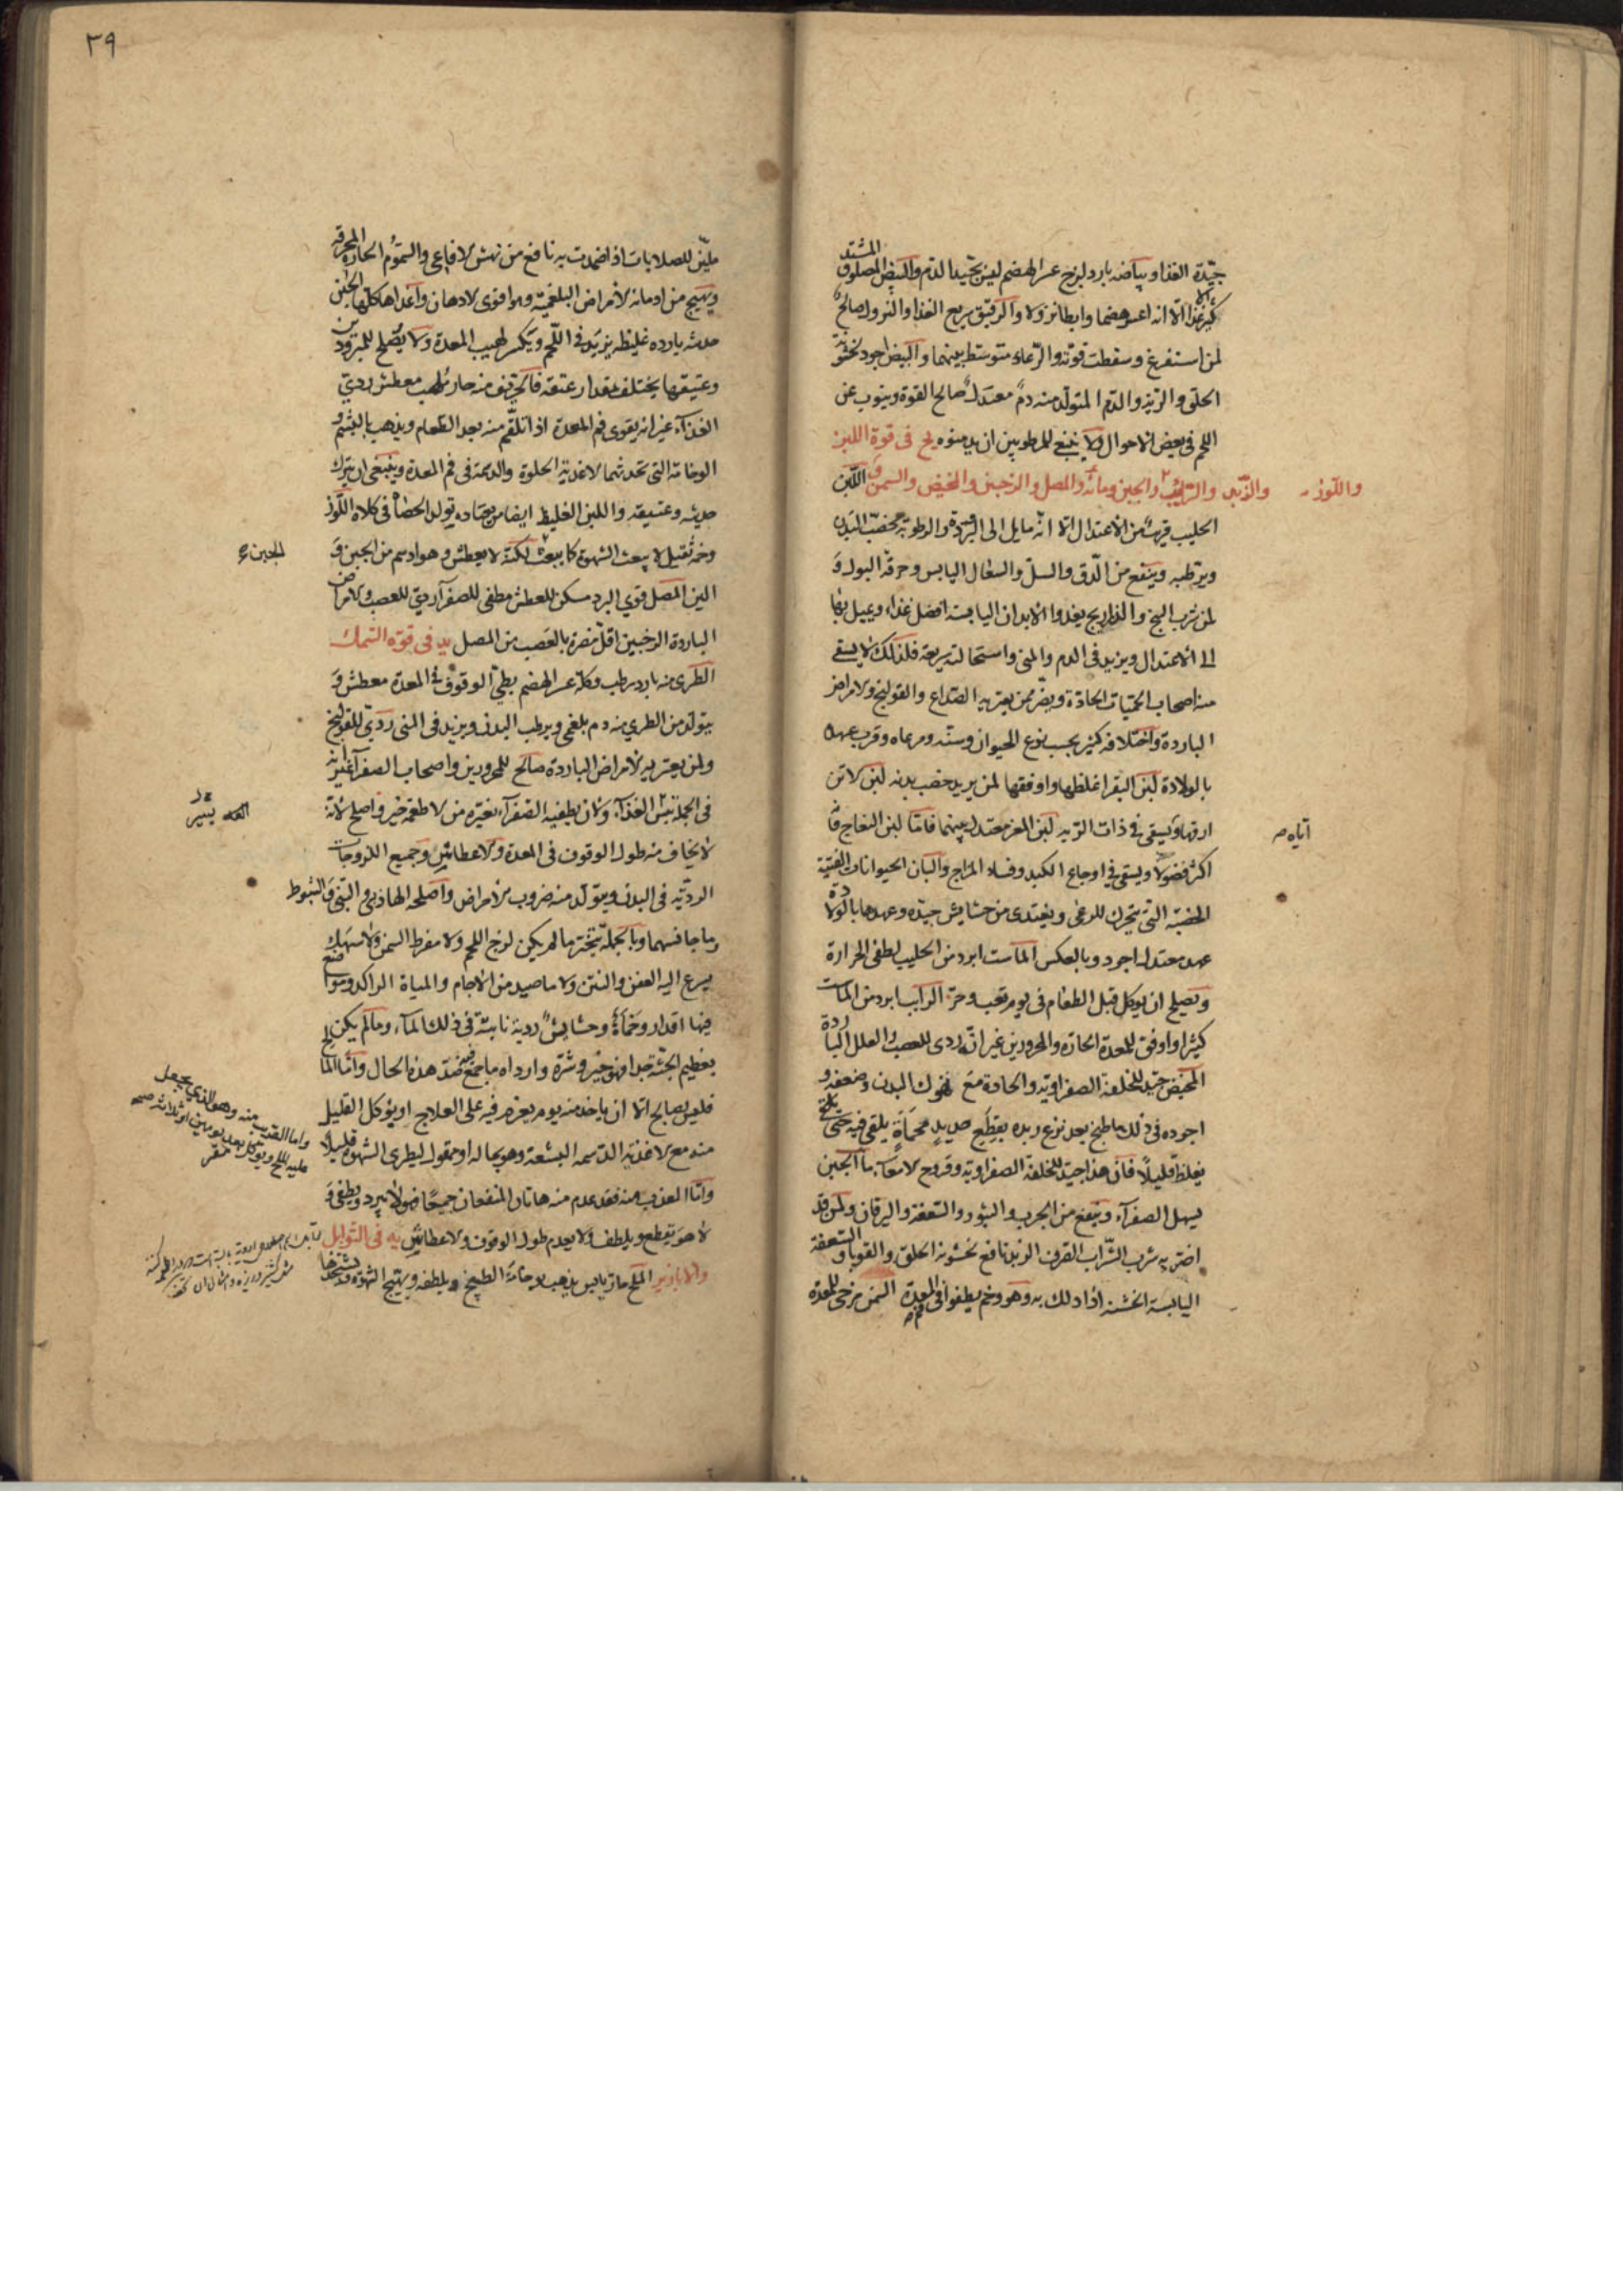 جيّدة الغذا وبياضه بارد لزج عسر الهضم ليس بجيّد الدم والبيض المصلوق المشتد
كثير غذا الا انه اعسر هضما وابطا نزولا والرقيق سريع الغذا والنزول صالح
لمن استفرغ وسقطت قوّته والرّعاد متوسّط بينهما والبيض اجود لخشونة
الحلق والرّية والدّم المتولّد منه دم معتدل صالح القوة وينوب عن
اللحم في بعض الاحوال ولا ينبغي للمرطوبين ان يدمنوه يج في قوة اللبن
واللّوز والزّبد والرّايب والجبن ومائه والمصل والرخبين والمخيض والسمن اللّبن
الحليب قريب من الاعتدال الا انه مايل الى البرودة والرطوبة مخصّب البدن
ويرطبه وينفع من الدّق والسلّ والسعال اليابس وحرقة البول و
لمن شرب البنج والذراريج يغذوا الابدان اليابسة افضل غذاء ويميل بها
الى الاعتدال ويزيد في الدم والمنى واستحالته سريعة فلذلك لا يسقى
منه اصحاب الحميّات الحادّة ويضرّ بمن يعتريه الصّداع والقولنج والامراض
الباردة واختلافه كثير بحسب نوع الحيوان وسنّه ومرعاه وقرب عهده
بالولادة لبن البقر اغلظها واوفقها لمن يريد خصب بدنه لبن الاتن
ارقها ويسقى في ذات الريه لبن المعز معتدل بينهما فامّا لبن النعاج
آتاه
اكثر فضولا ويسقى في اوجاع الكبد وفساد المزاج والبان الحيوانات الفتية
الخصبة التي تتحرك للرعي ويغتدى من حشايش جيدة وعهدها بالولادة
عهد معتدل اجود وبالعكس الماست ابرد من الحليب يطفى الحرارة
ويصلح ان يوكل قبل الطعام في يوم تعب وحرّ الرايب ابرد من الماست
كثيرا واوفق للمعدة الحارة والمحرورين غير انّه ردى للعصب والعلل الباردة
المخيض جيّد للخلفة الصفراويّه والحادة مع نهوك البدن وضعفه و
اجوده في ذلك ما طبخ بعد نزع زبده بقطع حديد محماة يلقى فيه حتى
يغلظ قليلاً فان هذا جيّد للخلفة الصفراوية وقروح الامعآء ماء الجبن
يسهل الصفرآء وينفع من الجرب والبثور والسّعفة واليرقان ولمن قد
اضرّ به شرب الشّراب الصّرف الزبد نافع لخشونة الحلق والقوبا والسّعفة
اليابسة الخشنة اذا دلك به وهو وخم يطفوا في فم المعدة السّمن مرخى للمعدة
٣٩
مليّن للصلابات اذا ضمدت به نافع من نهش الافاعى والسّموم الحارة المحرقة
ويهيج من ادمانه الامراض البلغميّة وهو اقوى الادهان واغذاها كلّها الجبن
حديثه بارده غليظه يزيد في اللّحم ويكسر لهيب المعدة ولا يصلح للمبرودين
وعتيقها يختلف بمقدار عتقه فالحرّيف منه حار ملهب معطش رديّ
الغذآء غير انه يقوى فم المعدة اذا تلقّم منه بعد الطّعام ويذهب بالبشم و
الوخامة التي تحدثها الاغذية الحلوة والدسمة في فم المعدة وينبغي ان يترك
حديثه وعتيقه واللبن الغليظ ايضا من يعتاده تولد الحصاة في كلاه اللّوز
وخم ثقيل لا يبعث الشهوة كما يبعث لكنه لا يعطش وهو ادسم من الجبن و
الجبن
الين المصل قوي البرد مسكن للعطش مطفى للصفرآء رديّ للعصب والامراض
الباردة الرخبين اقلّ مضرة بالعصب من المصل يد في قوّة السّمك
الطّرى منه بارد رطب وكله عسر الهضم بطيّ الوقوف في المعدة معطش و
يتولد من الطري منه دم بلغمي ويرطب البدن ويزيد في المنى رديّ للقولنج
ولمن يعتريه الامراض الباردة صالح للمحرورين واصحاب الصفرآء غير انه
في الجملة بئس الغذآء ولان يطفيه الصّفرآء بغيره من الاطعمة خير واصلح لانه
لا يخاف منه طول الوقوف في المعدة والاعطاش وجميع اللزوجات
الرديّه في البدن ويتولد منه ضروب الامراض واصلحه الهاذبى والبنّى والشبوط
وما جانسهما وبالجملة يتخيّر ما لم يكن لزج اللحم ولا مفرط السمن ولا سهك
يسرع اليه العفن والنتن ولا ما صيد من الاجام والمياة الراكدة ومواضع
فيها اقذار وحمأة وحشايش رديّة نابتة في ذلك المآء وما لم يكن
بعظيم الجثّة جدا فهو خير وشرّه وارداه ما جمع ضدّ هذه الحال وامّا المالح
فليس بصالح الا ان ياخذ منه يوم يعزم فيه على العلاج او يؤكل القليل
واما القديد منه وهو الذي يجعل
عليه الملح ويؤكل بعد يومين او ثلاثة صح
منه مع الاغذية الدّسمه البشعة وهو بحاله او مقلوا ليطرى الشهوة قليلاً
وامّا العذب منه فقد عدم منه هاتان المنفعتان جميعًا فهو لا يبرد ويطفى و
لا هو يقطع ويلطف ولا يعدم طول الوقوف والاعطاش يه في التّوابل
والابازير الملح حار يابس يذهب وخامة الطبيخ ويلطفه ويهيّج الشهوة ويشحذها